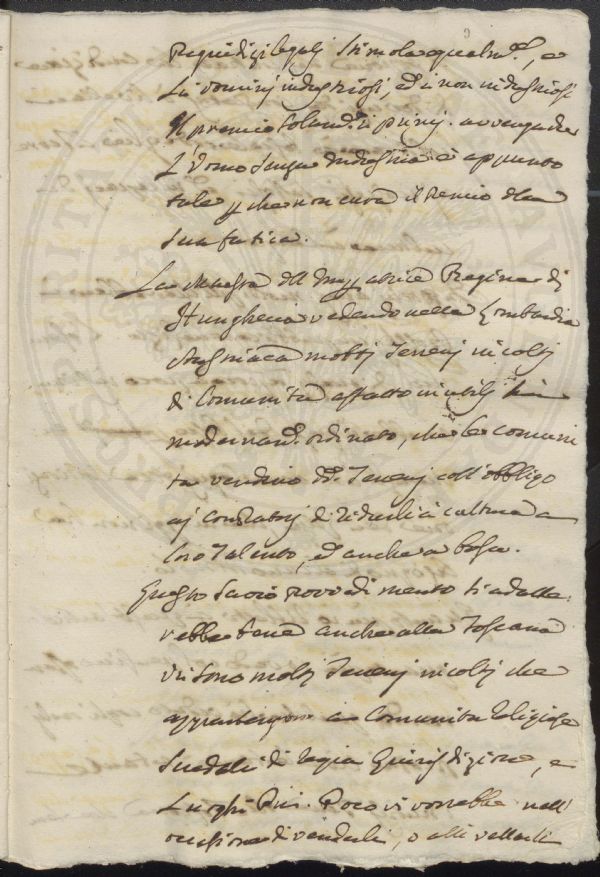 Pregiudizi legali stimola qualun.e, e
Li vomini industriosi, ed i non industriosi
Il premio soland.e i primi. avvengache
L'Vomo senza Industria è appunto
tale p. che non cura il Premio della
sua fatica.
La Maestà dell' Imperatrice Regina di
Hungheria vedendo nella Lombardia
Austriaca molti Terreni incolti
di Comunità affatto inutili hà
modernam.e ordinato, che le comuni
ta vendino dd.i Terreni coll'obbligo
ai Compratori di ridurli a cultura a
loro Talento, ed anche a bosco.
Questo savio Provedimento si adatte-
rebbe bene anche alla Toscana
Vi sono molti Terreni incolti che
appartengono a Comunità Religiose
Spedali di regia Giurisdizione, e
Luoghi Pii. Poco vi vorrebbe nell'
di venderli, o allivellarli